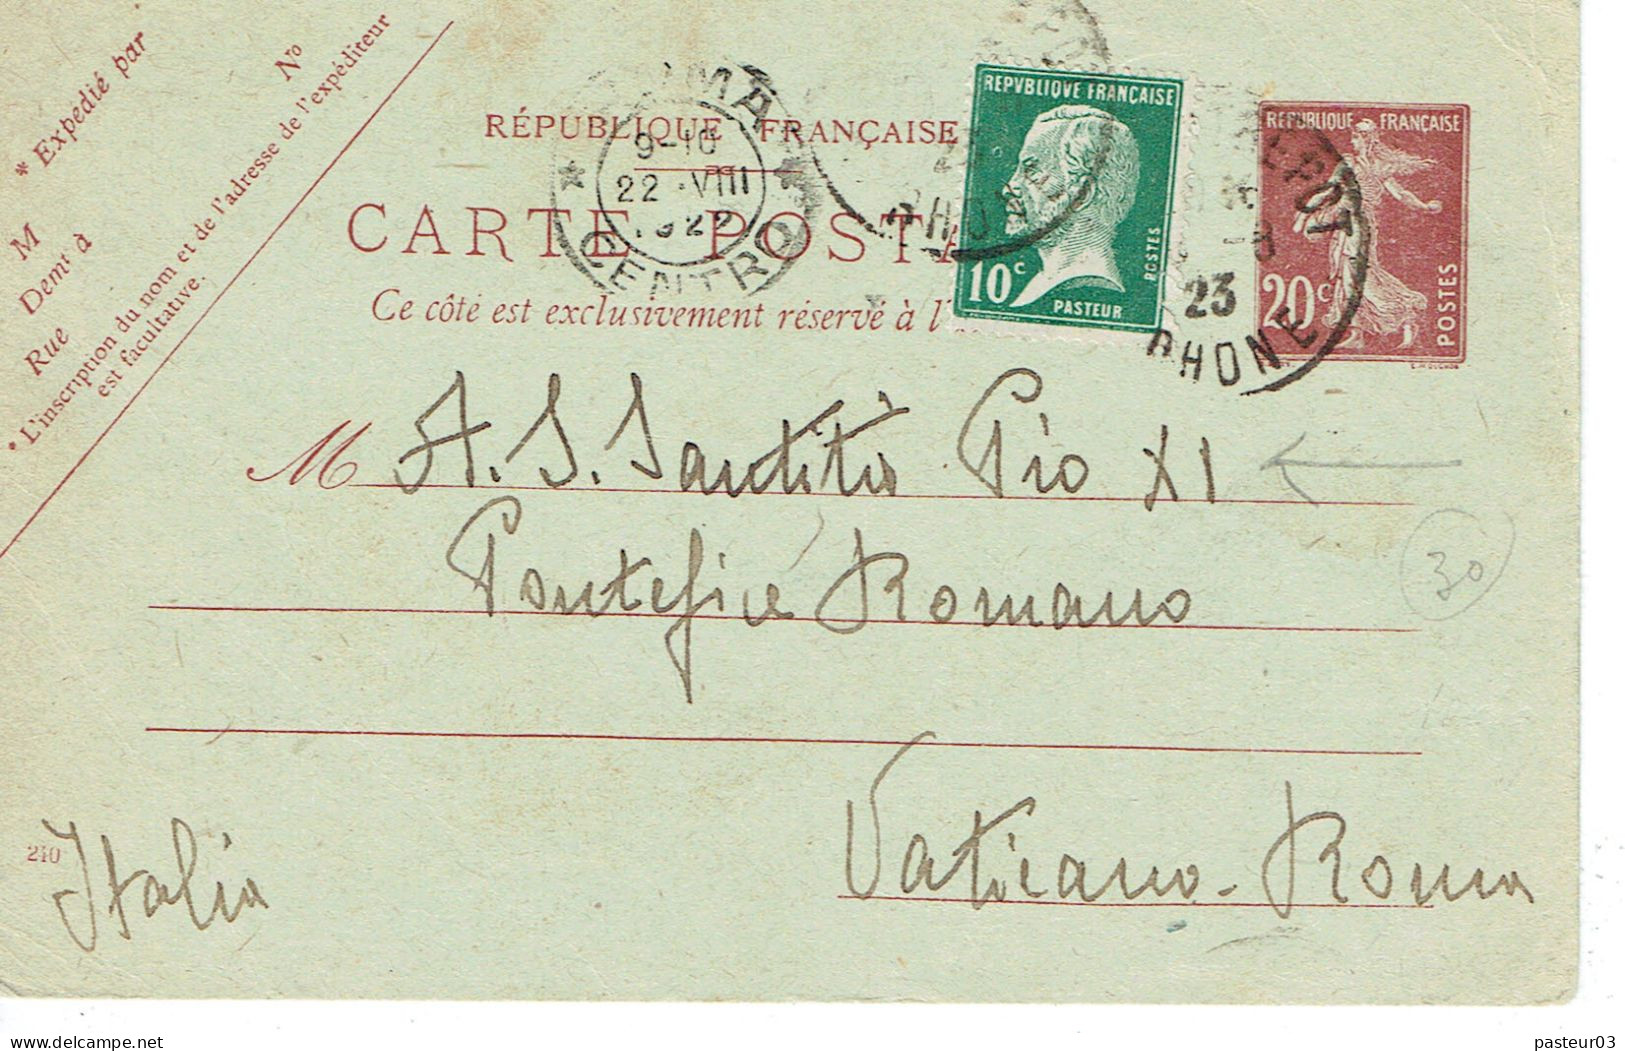 * Expédié par
Nº
M
Demt à
Rue
* L'inscription du nom et de l'adresse de l'expéditeur
est facultative.
RÉPUBLIQUE FRANÇAISE
CARTE POSTA
Ce côté est exclusivement réservé à l'
9-10
22·VIII
CENTRO
REPVBLIQVE FRANÇAISE
10c
PASTEUR
POSTES
RÉPUBLIQUE FRANÇAISE
20c
POSTES
23
RHONE
M A. S. Santità Pio XI
Pontefice Romano
30
Vaticano - Roma
240
Italia
delcampe.net
pasteur03